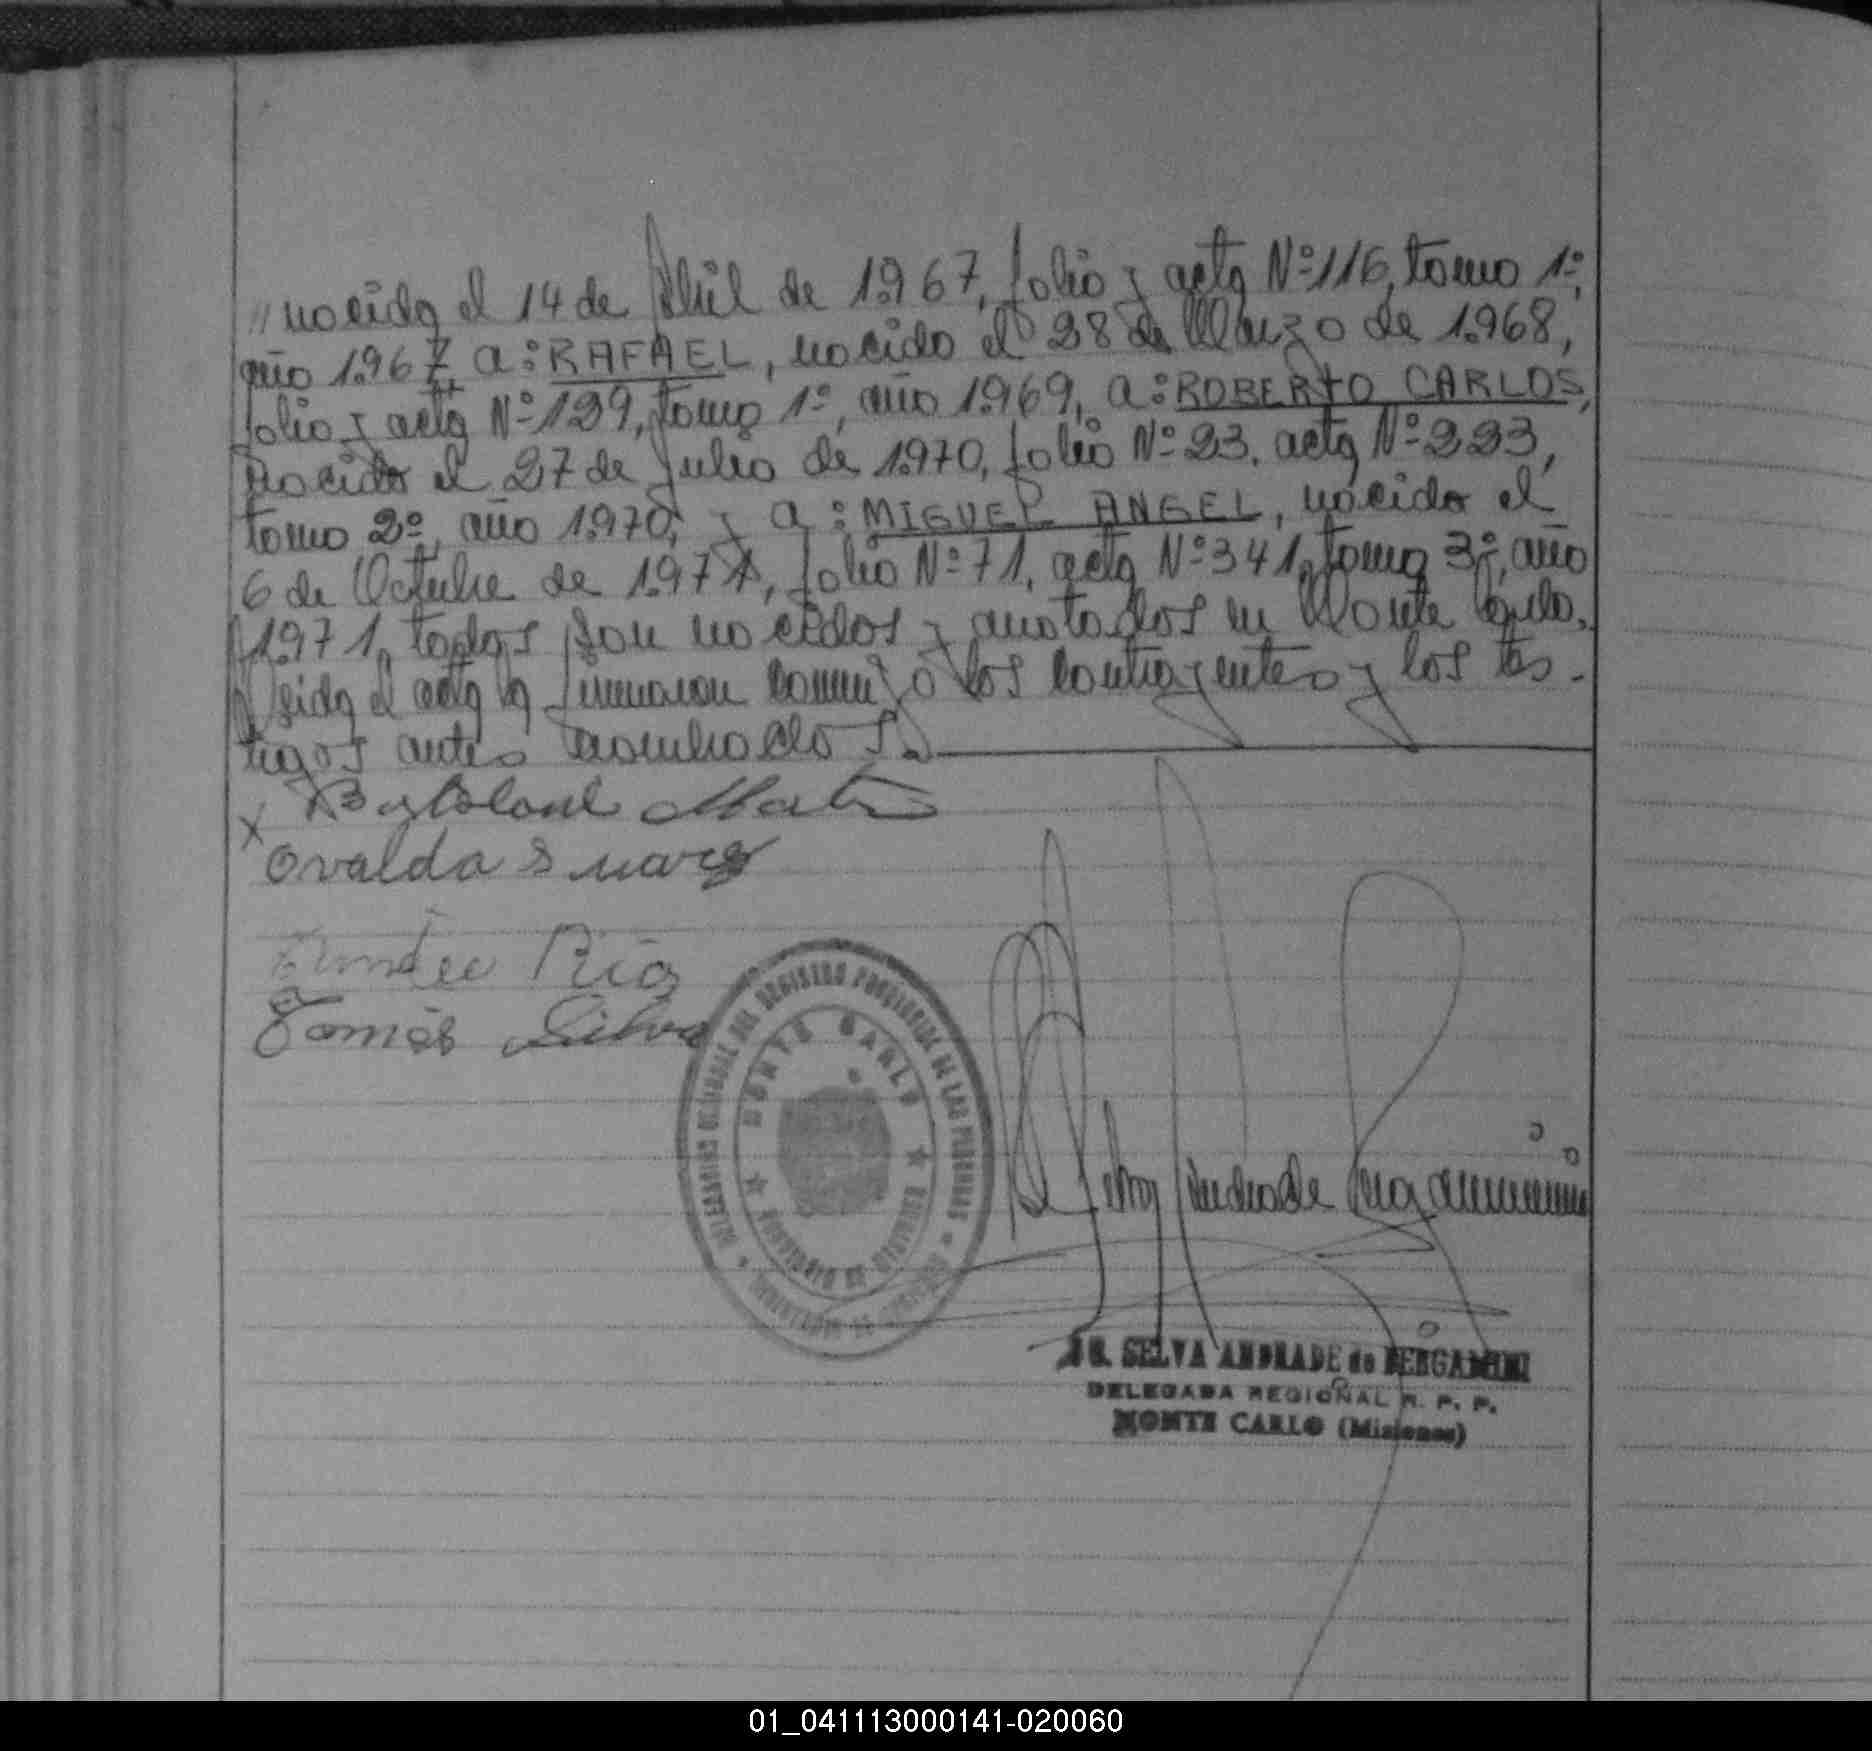 // nacida el 14 de Abril de 1.967, folio y acta Nº 116, tomo 1º,
año 1.967, a: RAFAEL, nacido el 28 de Marzo de 1.968,
folio y acta Nº 129, tomo 1º, año 1.969, a: ROBERTO CARLOS,
nacido el 27 de Julio de 1.970, folio Nº 23, acta Nº 223,
tomo 2º, año 1.970, y a: MIGUEL ANGEL, nacido el
6 de Octubre de 1.971, folio Nº 71, acta Nº 341, tomo 3º, año
1.971, todos son nacidos y anotados en Monte Carlo.
Leida el acta la firmaron conmigo los contrayentes y los tes-
tigos antes nombrados.
x
Ovalda Suarez
Rios
Tomás Silva
DELEGADO REGIONAL DEL REGISTRO PROVINCIAL DE LAS PERSONAS
MONTE CARLO
PROVINCIA DE MISIONES
Selva Andrade Bergamini
SELVA ANDRADE de BERGAMINI
DELEGADA REGIONAL R. P. P.
MONTE CARLO (Misiones)
01_041113000141-020060